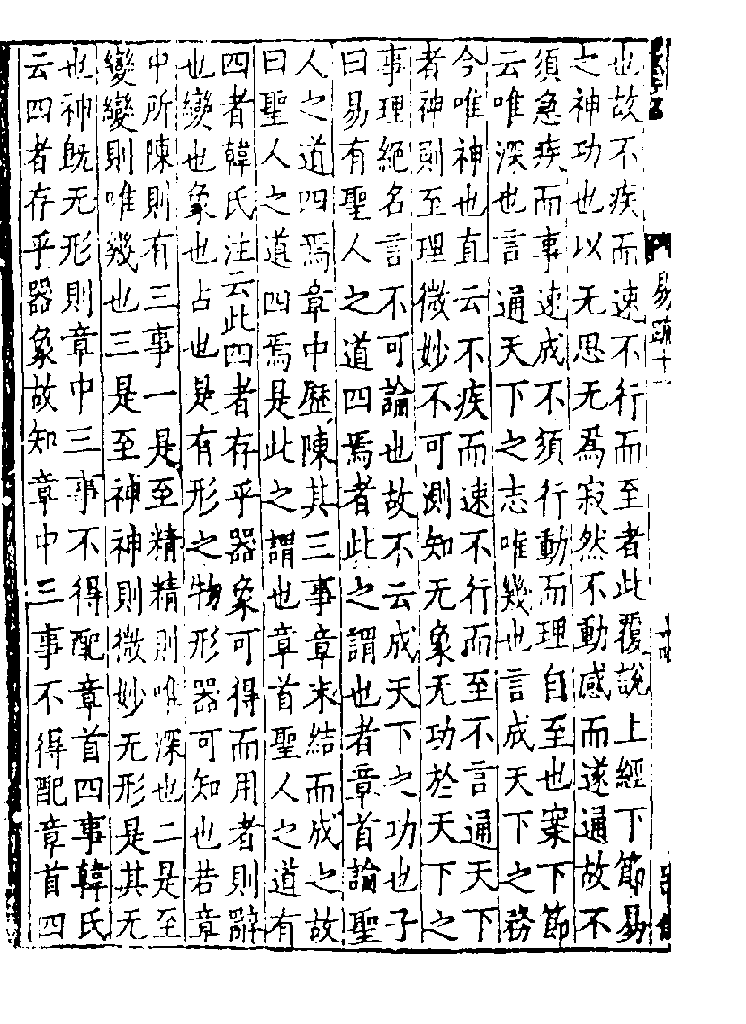 也故不疾而速不行而至者此覆說上經下節易
之神功也以无思无為寂然不動感而遂通故不
須急疾而事速成不須行動而理自至也案下節
云唯深也言通天下之志唯幾也言成天下之務
今唯神也直云不疾而速不行而至不言通天下
者神則至理微妙不可測知无象无功於天下之
事理絕名言不可論也故不云成天下之功也子
曰易有聖人之道四焉者此之謂也者章首論聖
人之道四焉章中歷陳其三事章末結而成之故
曰聖人之道四焉是此之謂也章首聖人之道有
四者韓氏注云此四者存乎器象可得而用者則辭
也變也象也占也是有形之物形器可知也若章
中所陳則有三事一是至精精則唯深也二是至
變變則唯幾也三是至神神則微妙无形是其无
也神旣无形則章中三事不得配章首四事韓氏
云四者存乎器象故知章中三事不得配章首四
易疏十一
十四